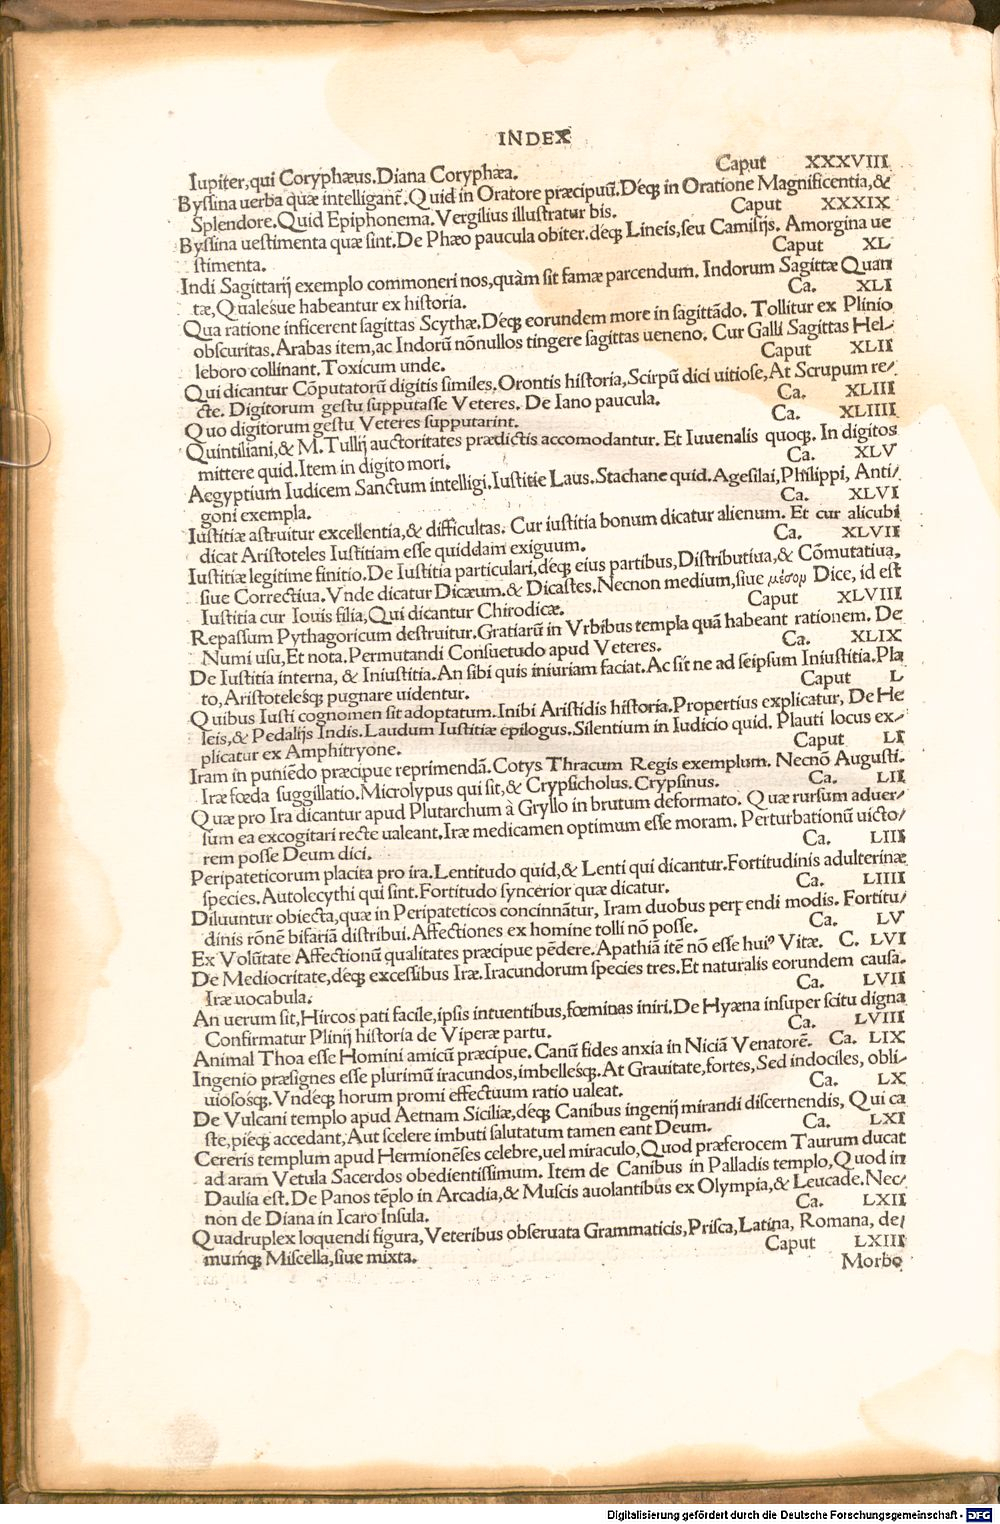 INDEX
Iupiter,qui Coryphæus.Diana Coryphæa. Caput XXXVIII
Byssina uerba quæ intelligant̃.Quid in Oratore præcipuũ.Déq; in Oratione Magnificentia,&
Splendore.Quid Epiphonema.Vergilius illustratur bis. Caput XXXIX
Byssina uestimenta quæ sint.De Phæo paucula obiter.déq; Lineis,seu Camisijs. Amorgina ue
stimenta. Caput XL
Indi Sagittarij exemplo commoneri nos,quàm sit famæ parcendum. Indorum Sagittæ Quan
tæ,Qualesue habeantur ex historia. Ca. XLI
Qua ratione inficerent sagittas Scythæ.Déq; eorundem more in sagittãdo. Tollitur ex Plinio
obscuritas.Arabas item,ac Indorũ nõnullos tingere sagittas ueneno. Cur Galli Sagittas Hel-
leboro collinant.Toxicum unde. Caput XLII
Qui dicantur Cõputatorũ digitis similes.Orontis historia,Scirpũ dici uitiose,At Scrupum re-
cte. Digitorum gestu supputasse Veteres. De Iano paucula. Ca. XLIII
Quo digitorum gestu Veteres supputarint. Ca. XLIIII
Quintiliani,& M.Tullij auctoritates prædictis accomodantur. Et Iuuenalis quoq;. In digitos
mittere quid.Item in digito mori. Ca. XLV
Aegyptium Iudicem Sanctum intelligi.Iustitie Laus.Stachane quid.Agesilai,Philippi, Anti-
goni exempla. Ca. XLVI
Iustitiæ astruitur excellentia,& difficultas. Cur iustitia bonum dicatur alienum. Et cur alicubi
dicat Aristoteles Iustitiam esse quiddam exiguum. Ca. XLVII
Iustitiæ legitime finitio.De Iustitia particulari,déq; eius partibus,Distributiua,& Cõmutatiua,
siue Correctiua.Vnde dicatur Dicæum.& Dicastes.Necnon medium,siue μέσομ Dice, id est
Iustitia cur Iouis filia,Qui dicantur Chirodicæ. Caput XLVIII
Repassum Pythagoricum destruitur.Gratiarũ in Vrbibus templa quã habeant rationem. De
Numi usu,Et nota.Permutandi Consuetudo apud Veteres. Ca. XLIX
De Iustitia interna, & Iniustitia.An sibi quis iniuriam faciat.Ac sit ne ad seipsum Iniustitia.Pla
to,Aristotelesq; pugnare uidentur. Caput L
Quibus Iusti cognomen sit adoptatum.Inibi Aristidis historia.Propertius explicatur, De He
leis,& Pedalijs Indis.Laudum Iustitiæ epilogus.Silentium in Iudicio quid. Plauti locus ex-
plicatur ex Amphitryone. Caput LI
Iram in puniẽdo præcipue reprimendã.Cotys Thracum Regis exemplum. Necnõ Augusti.
Iræ fœda suggillatio.Microlypus qui sit,& Crypsicholus.Crypsinus. Ca. LII
Quæ pro Ira dicantur apud Plutarchum à Gryllo in brutum deformato. Quæ rursum aduer-
sum ea excogitari recte ualeant.Iræ medicamen optimum esse moram. Perturbationũ uicto-
rem posse Deum dici. Ca. LIII
Peripateticorum placita pro ira.Lentitudo quid,& Lenti qui dicantur.Fortitudinis adulterinæ
species.Autolecythi qui sint.Fortitudo syncerior quæ dicatur. Ca. LIIII
Diluuntur obiecta,quæ in Peripateticos concinnãtur, Iram duobus perpendi modis. Fortitu-
dinis rõnẽ bifariã distribui.Affectiones ex homine tolli nõ posse. Ca. LV
Ex Volũtate Affectionũ qualitates præcipue pẽdere.Apathiã itẽ nõ esse huiꝰ Vitæ. C. LVI
De Mediocritate,déq; excessibus Iræ.Iracundorum species tres.Et naturalis eorundem causa.
Iræ uocabula. Ca. LVII
An uerum sit,Hircos pati facile,ipsis intuentibus,fœminas iniri.De Hyæna insuper scitu digna
Confirmatur Plinij historia de Viperæ partu. Ca. LVIII
Animal Thoa esse Homini amicũ præcipue. Canũ fides anxia in Niciã Venatorẽ. Ca. LIX
Ingenio præsignes esse plurimũ iracundos,imbellesq;.At Grauitate,fortes,Sed indociles, obli-
uiososq;.Vndéq; horum promi effectuum ratio ualeat. Ca. LX
De Vulcani templo apud Aetnam Siciliæ,déq; Canibus ingenij mirandi discernendis, Qui ca
ste,piéq; accedant,Aut scelere imbuti salutatum tamen eant Deum. Ca. LXI
Cereris templum apud Hermionẽses celebre,uel miraculo,Quod præferocem Taurum ducat
ad aram Vetula Sacerdos obedientissimum. Item de Canibus in Palladis templo,Quod in
Daulia est.De Panos tẽplo in Arcadia,& Muscis auolantibus ex Olympia,& Leucade.Nec-
non de Diana in Icaro Insula. Ca. LXII
Quadruplex loquendi figura,Veteribus obseruata Grammaticis,Prisca,Latina, Romana, de-
mumq; Miscella,siue mixta. Caput LXIII
Morbo
Digitalisierung gefördert durch die Deutsche Forschungsgemeinschaft - DFG